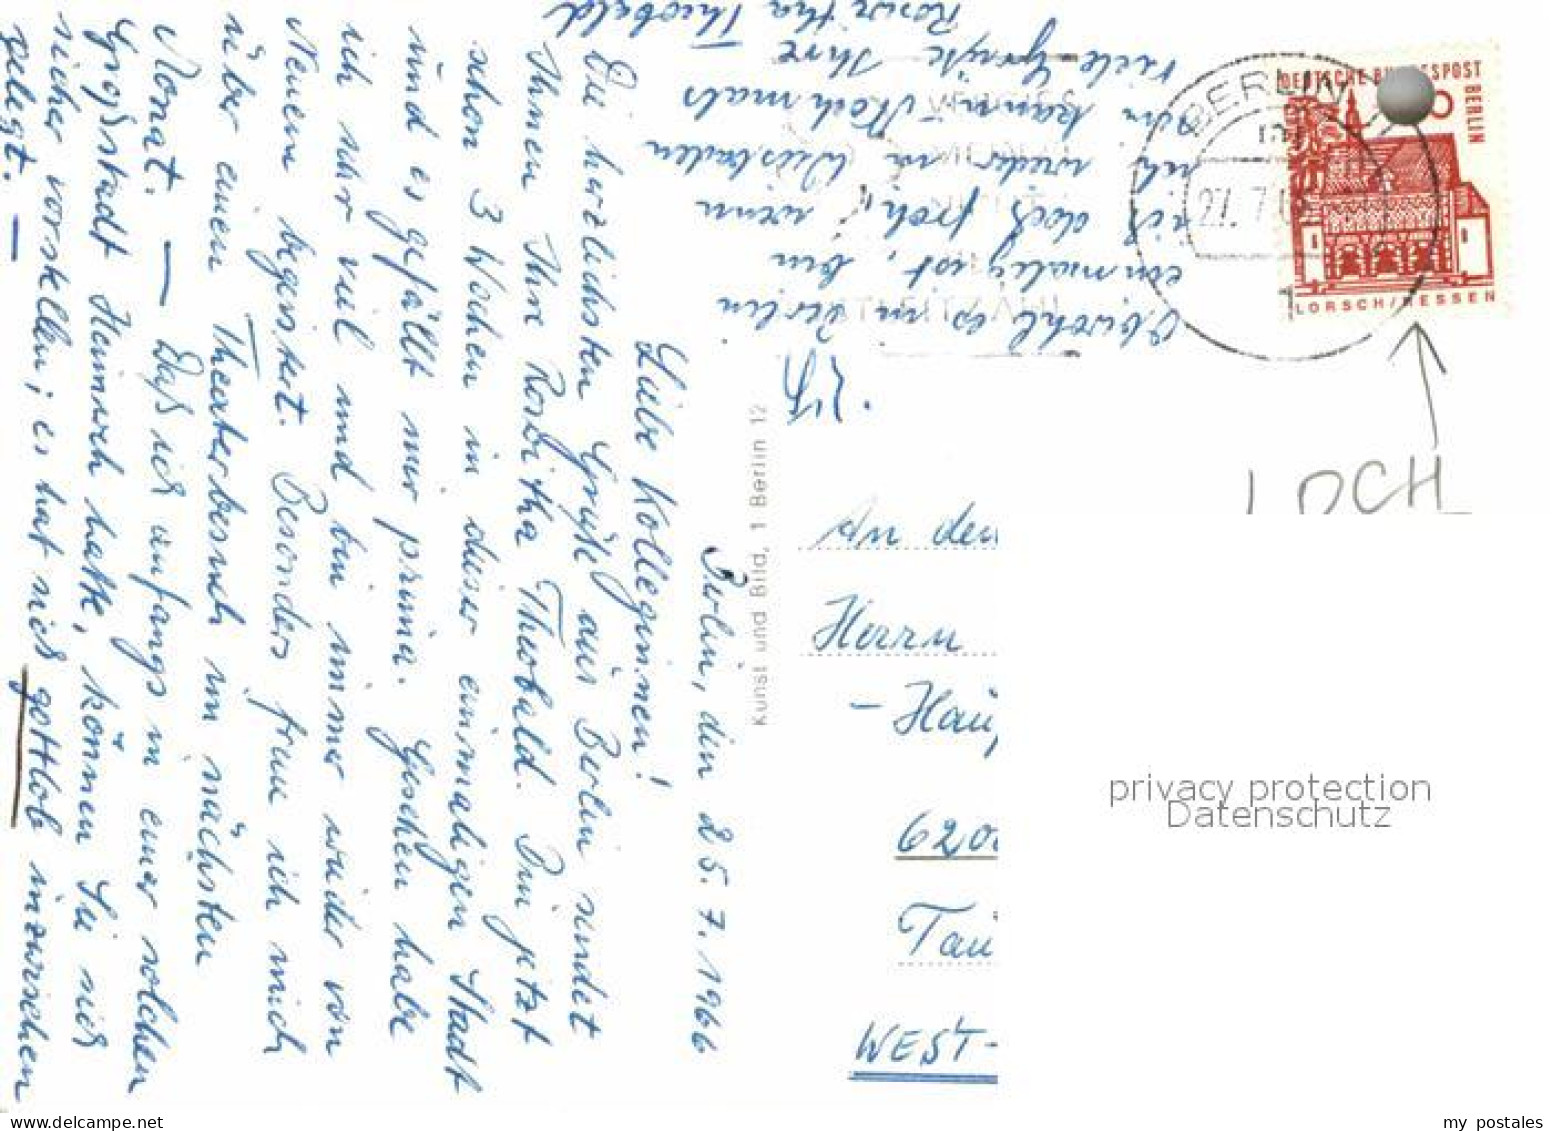 Berlin, den 25.7.1966
Liebe Kolleginnen!
Die herzlichsten Grüße aus Berlin sendet
Ihnen Ihre Roswitha Theobald. Bin jetzt
schon 3 Wochen in dieser einmaligen Stadt
und es gefällt mir prima. Gesehen habe
ich sehr viel und bin immer wieder von
Neuem begeistert. Besonders freue ich mich
über einen Theaterbesuch im nächsten
Monat. — Daß ich anfangs in einer solchen
Großstadt Heimweh hatte, können Sie sich
sicher vorstellen; es hat sich gottlob inzwischen
gelegt. —
Obwohl es in Berlin
einmalig ist, bin
ich doch froh, wenn
ich wieder in Wiesbaden
sein kann. Nochmals
viele Grüße Ihre
Roswitha Theobald
Kunst und Bild, 1 Berlin 12
DEUTSCHE BUNDESPOST
BERLIN
LORSCH/HESSEN
BERLIN
27. 7.
LOCH
An den
Herrn
- Hau
620
Tau
WEST-
privacy protection
Datenschutz
my postales